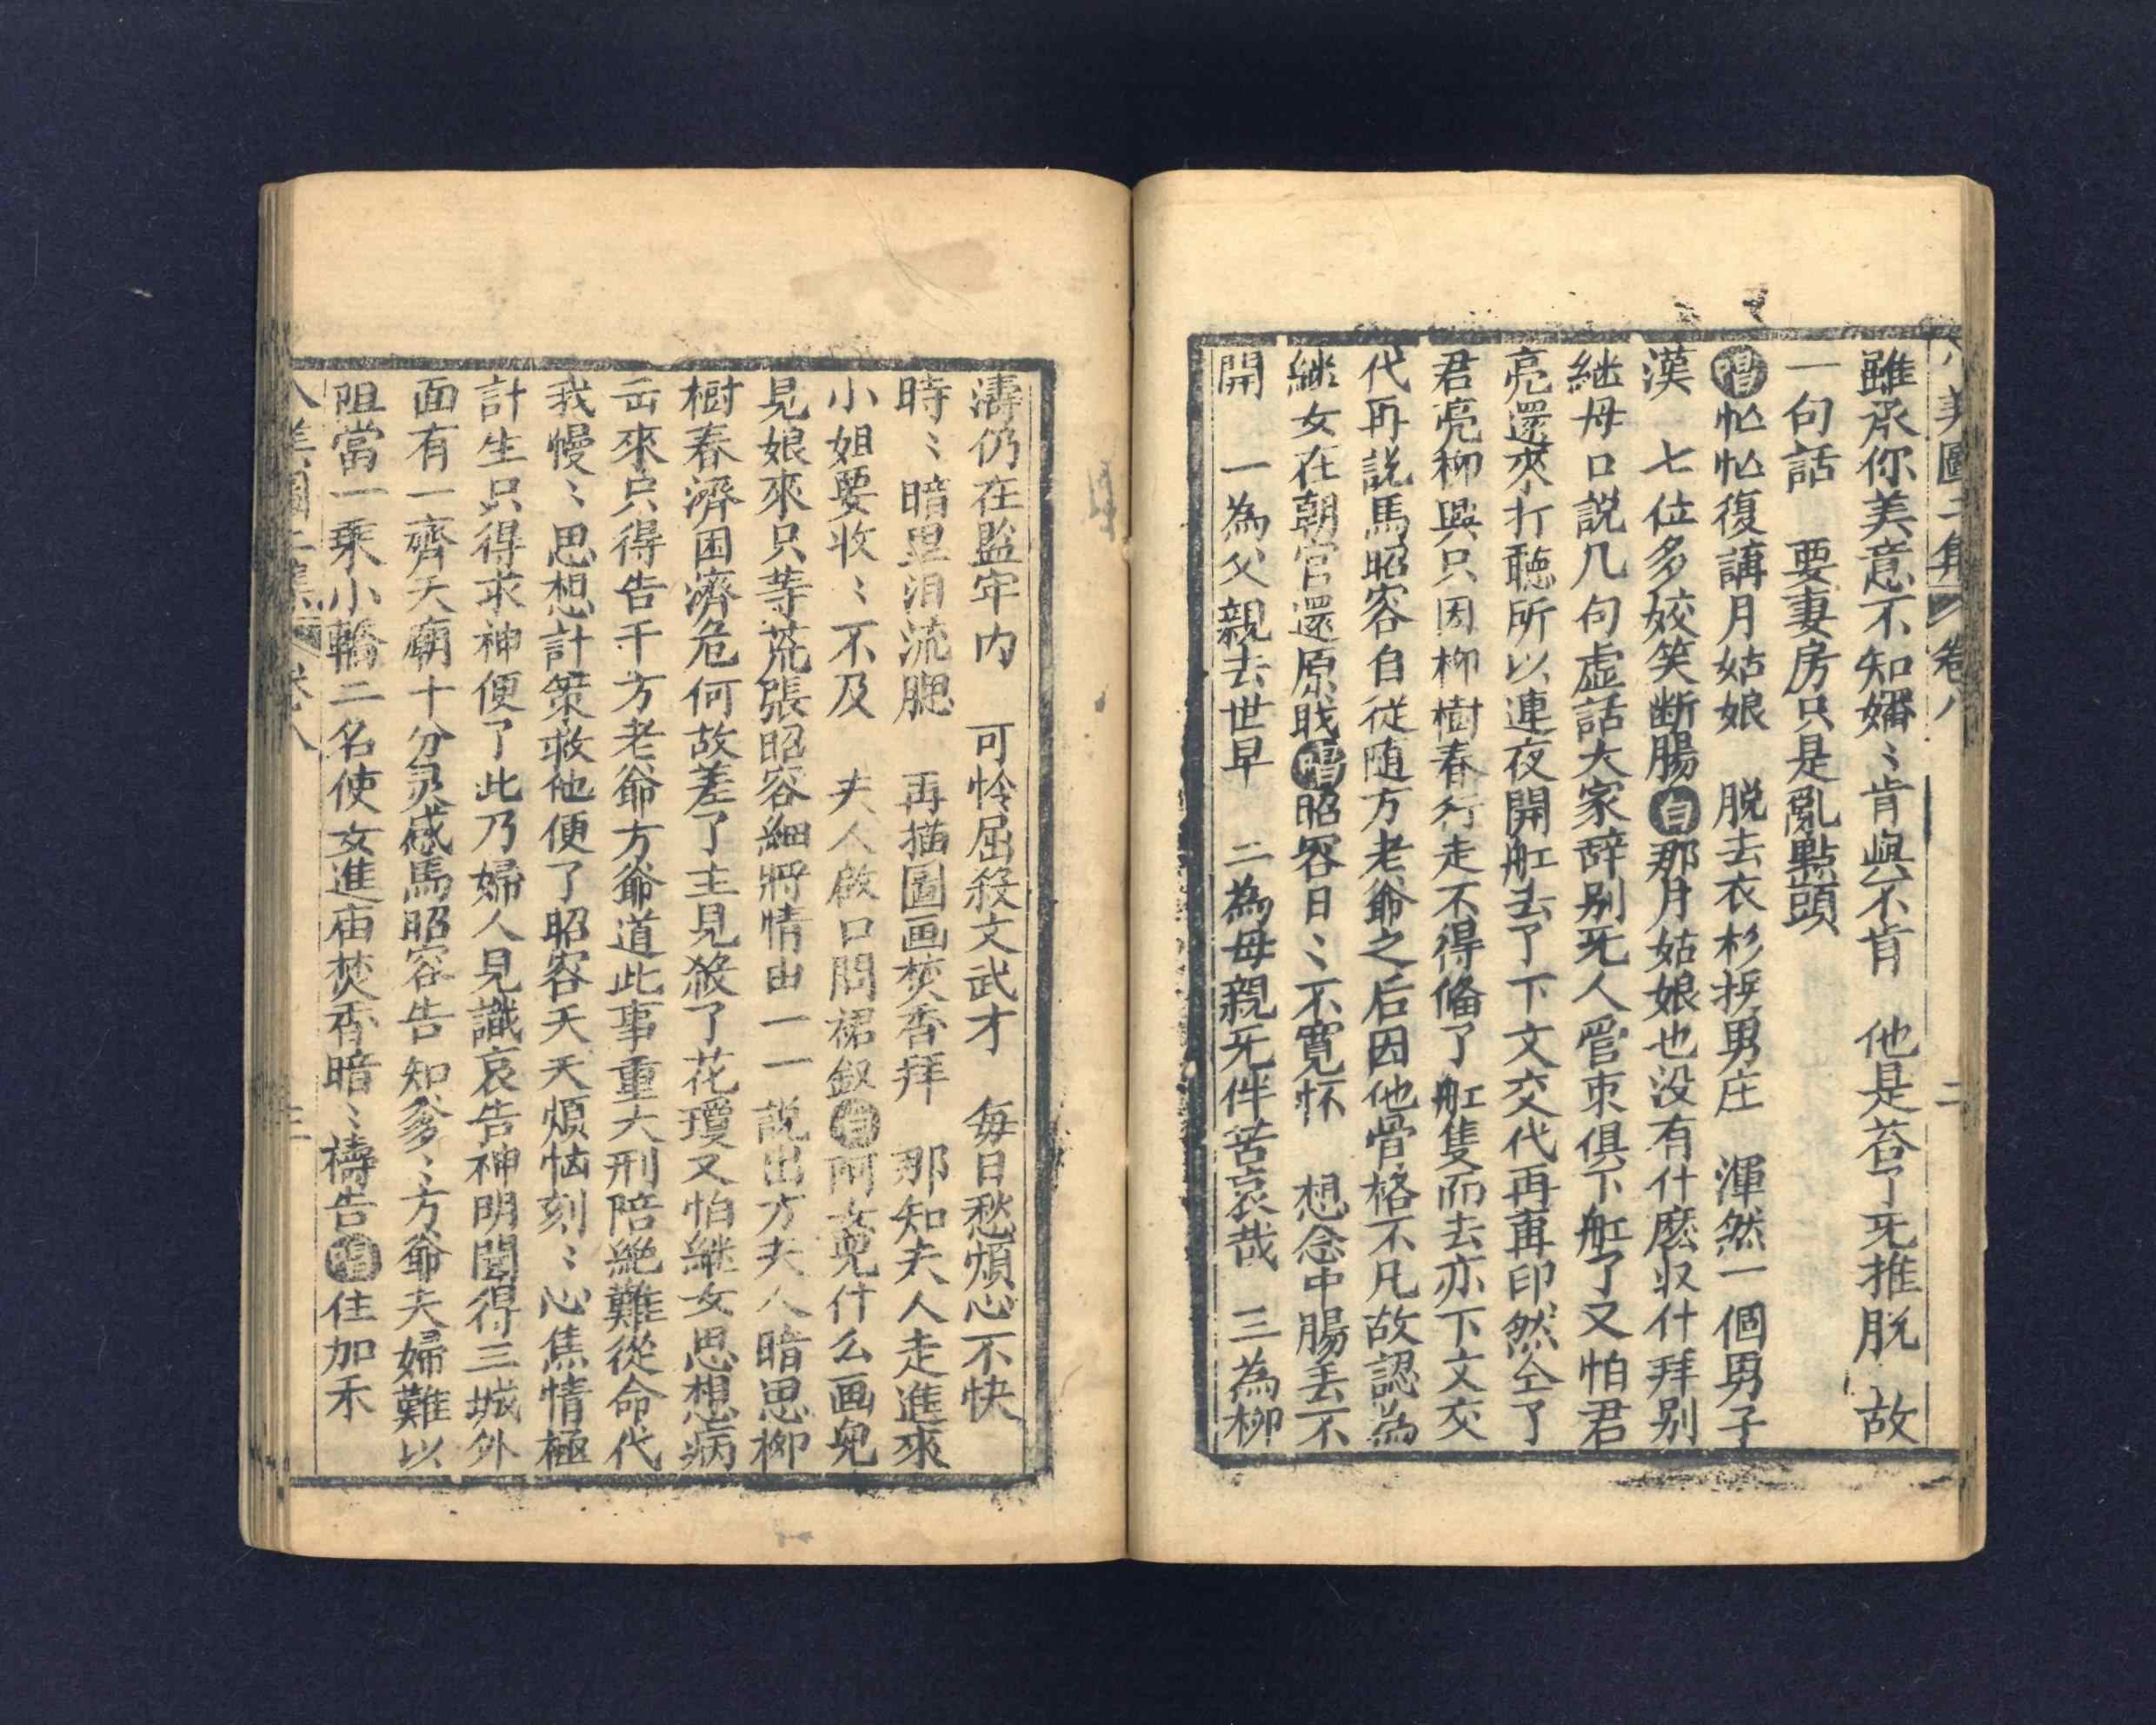 八美圖二集 卷八 二
雖承你美意不知嬸〻肯與不肯 他是荅了牙推脱 故
一句話 要妻房只是亂點頭
唱忙忙復講月姑娘 脱去衣杉換男庄 渾然一個男子
漢 七位多姣笑断腸白那月姑娘也没有什麽収什拜别
継母口説几句虚話大家辞别死人管束俱下舡了又怕君
亮還來打聴所以連夜開舡去了下文交代再再印然仝了
君亮柳興只因柳樹春行走不得偹了舡隻而去亦下文交
代再説馬昭容自従随方老爺之后因他骨格不凡故認為
継女在朝官還原戝唱昭容日〻不寛怀 想念中腸丢不
開 一為父親去世早 二為母親死伴苦哀哉 三為柳
濤仍在監牢内 可怜屈殺文武才 每日愁煩心不快
時〻暗里泪流腮 再描圖画焚香拜 那知夫人走進來
小姐要收〻不及 夫人啟口問裙釵白阿女兒什么画兒
見娘來只等荒張昭容細將情由一一説出方夫人暗思柳
樹春濟困濟危何故差了主見殺了花瓊又怕継女思想病
出來只得告千方老爺方爺道此事重大刑陪絶難從命代
我慢〻思想計策救他便了昭容天天煩恼刻〻心焦情極
計生只得求神便了此乃婦人見識哀告神明聞得三城外
面有一齊天廟十分灵感馬昭容告知爹〻方爺夫婦難以
阻當一乗小轎二名使女進庙焚香暗〻禱告唱住加禾
八美圖二集 卷八 三